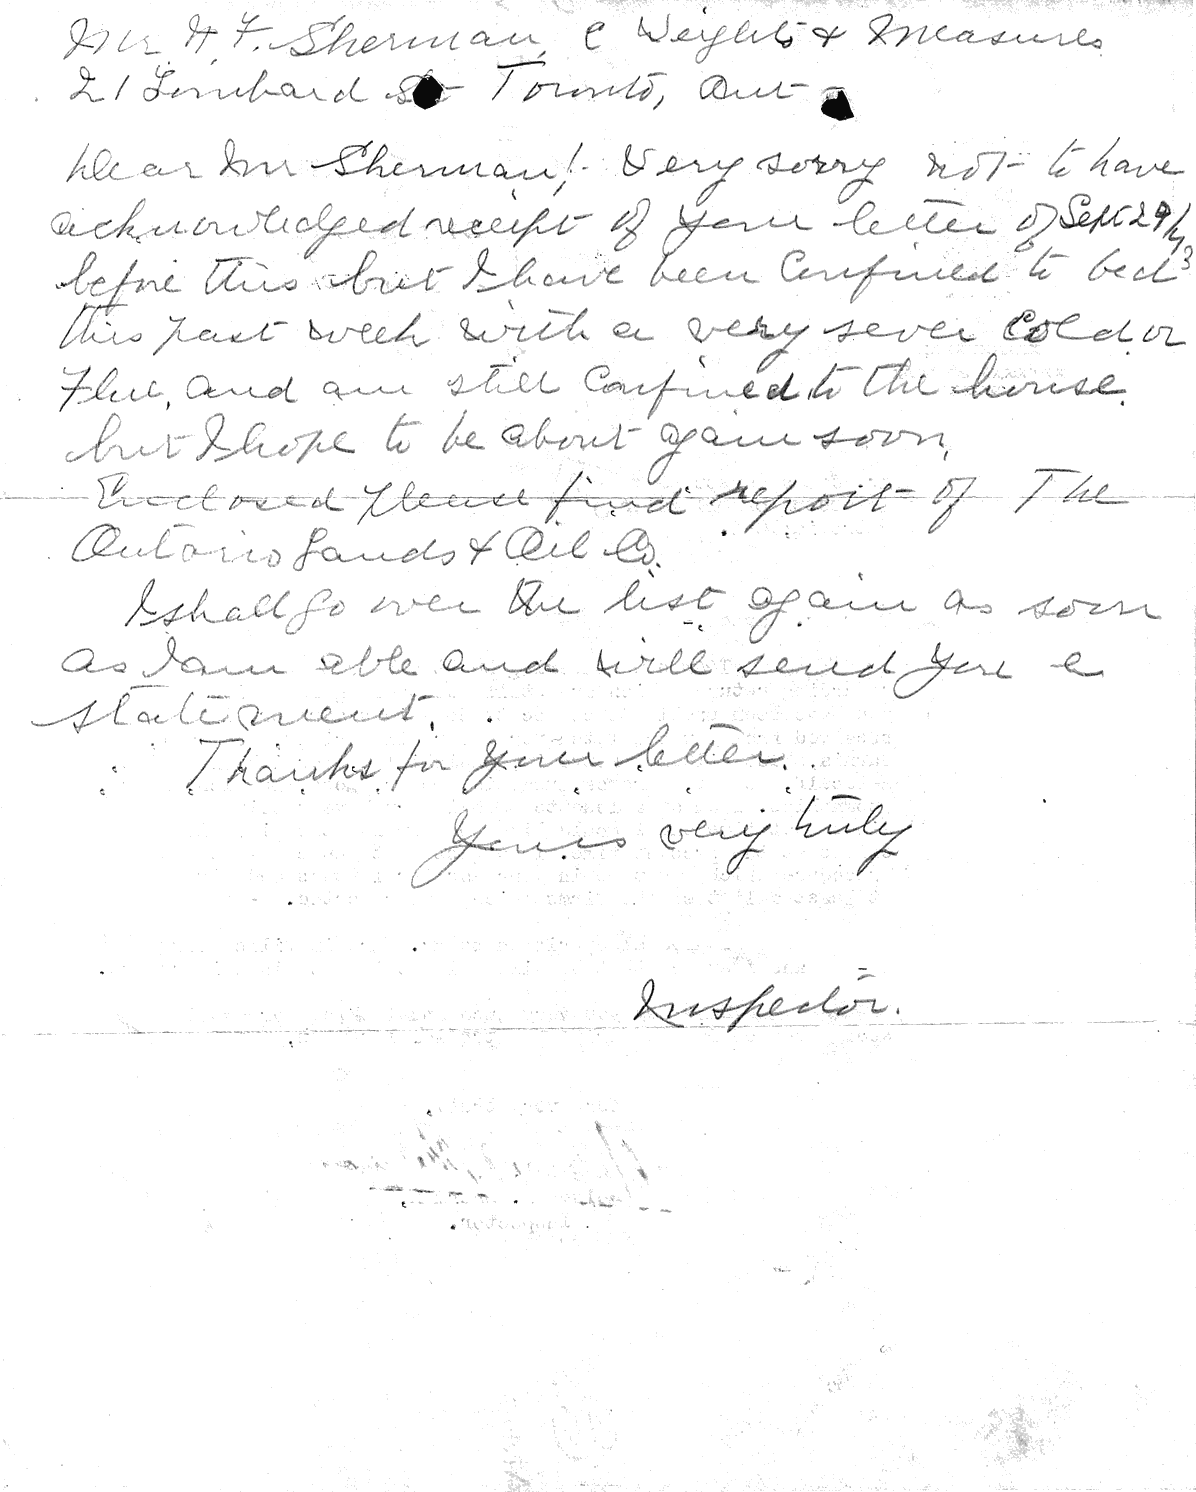 Mr H F. Sherman, c Weights & Measures
21 Lombard St Toronto, Ont
Dear Mr Sherman! Very sorry not to have
acknowledged receipt of your letter of Sept 29/43
before this but I have been Confined to bed
this past week with a very sever Cold or
Flue, and am still Confined to the house.
but I hope to be about again soon,
Enclosed please find report of The
Ontario Lands & Oil Co.
I shall go over the list again as soon
as I am able and will send you a
statement.
Thanks for your letter.
Yours very truly
Inspector.